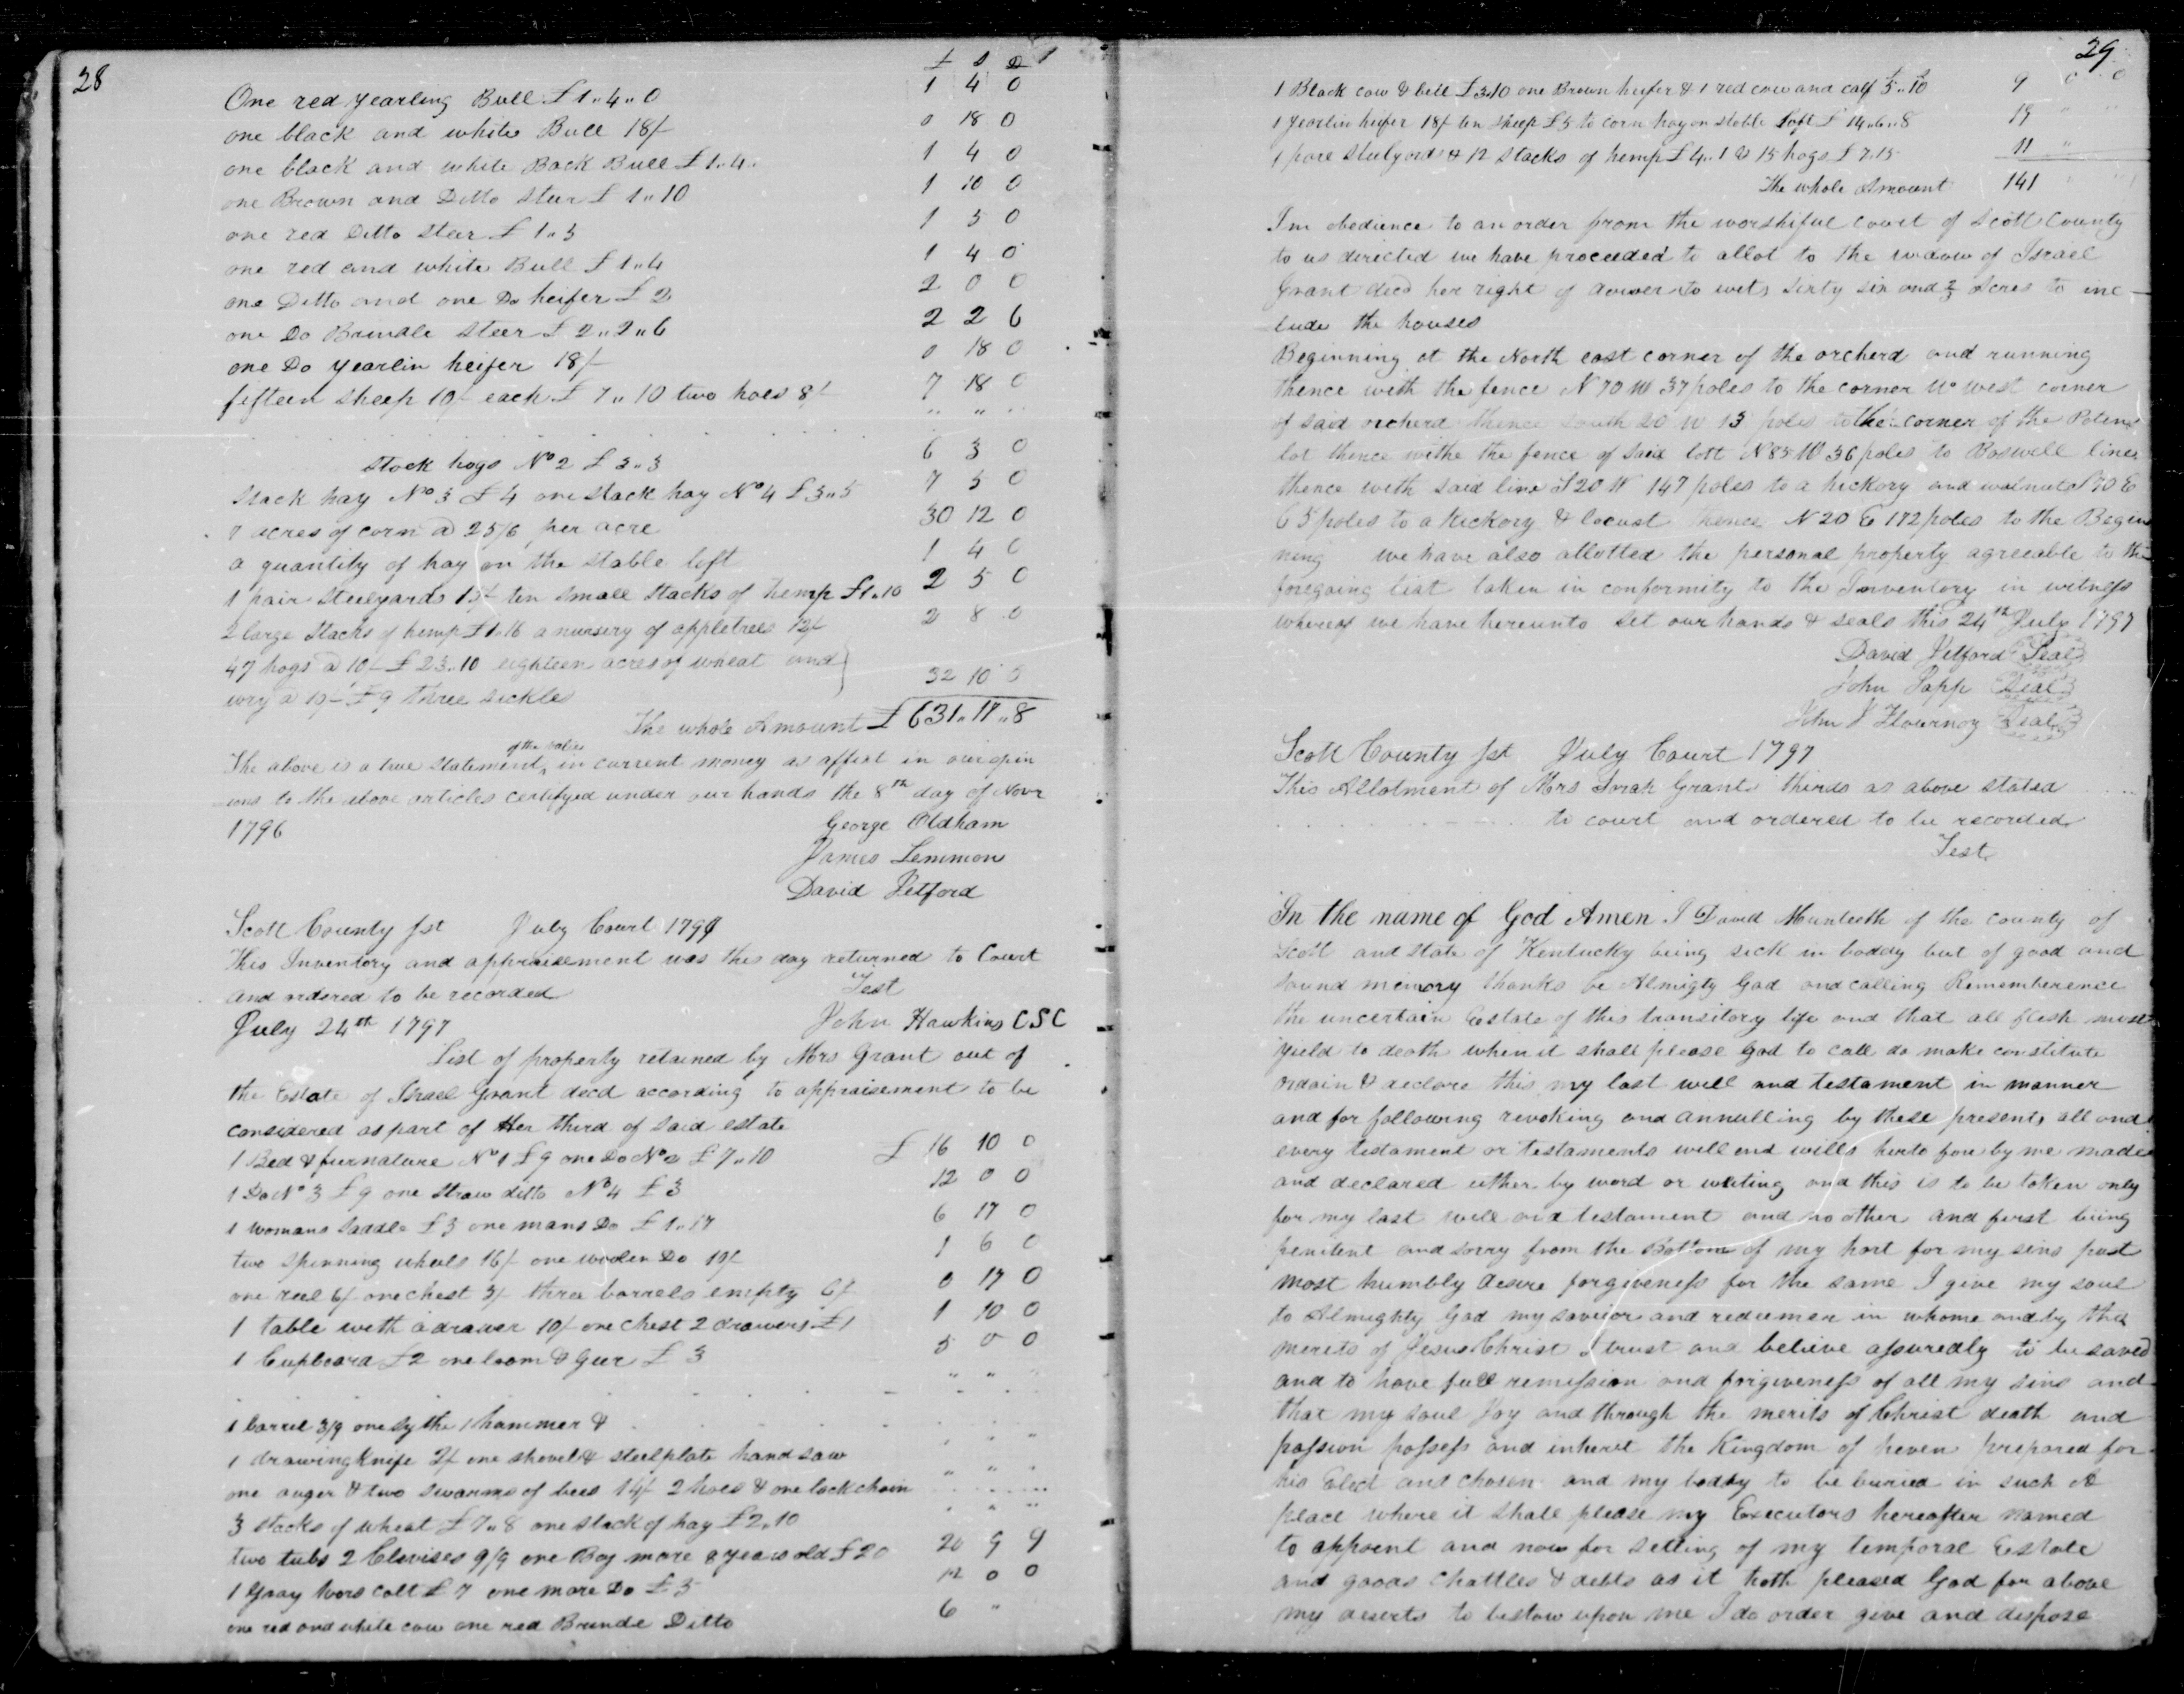 28
£ S D
One red yearling Bull £1„4„0 1 4 0
one black and white Bull 18/- 0 18 0
one black and white Back Bull £1„4„ 1 4 0
one Brown and Ditto steer £1„10 1 10 0
one red Ditto steer £1„5 1 5 0
one red and white Bull £1„4 1 4 0
one Ditto and one Do heifer £2 2 0 0
one Do Brindle steer £2„2„6 2 2 6
one Do yearlin heifer 18/- 0 18 0
fifteen sheep 10/- each £7„10 two hoes 8/- 7 18 0
„ „ „
stock hogs No 2 £3„3 6 3 0
Stack hay No 3 £4 one stack hay No 4 £3„5 7 5 0
acres of corn @ 25/6 per acre 30 12 0
a quantity of hay on the stable loft 1 4 0
1 pair steelyards 15/- ten small stacks of hemp £1„10 2 5 0
2 large stacks of hemp £1„16 a nursery of appletrees 12/- 2 8 0
47 hogs @ 10/- £23„10 eighteen acres of wheat and
@ 10/- £9 three sickles 32 10 0
The whole Amount £ 631„17„8
The above is a true statement of the value in current money as affixt in our opin
ions to the above articles certifyed under our hands the 8th day of Novr
1796 George Oldham
James Lemmon
David Jetford
Scott County sst July Court 1797
This Inventory and appraisement was this day returned to Court
and ordered to be recorded Test
July 24th 1797 John Hawkins CSC
List of property retained by Mrs Grant out of
the Estate of Israel Grant decd according to appraisement to be
considered as part of Her third of said estate
1 Bed & furnature No 1 £9 one Do No 2 £7„10 £ 16 10 0
1 Do No 3 £9 one straw ditto No 4 £3 12 0 0
1 womans saddle £3 one mans Do £1„17 6 17 0
two spinning wheels 16/- one woolen Do 10/- 1 6 0
one reel 6/- one chest 3/- three barrels empty 6/- 0 17 0
1 table with a drawer 10/- one chest 2 drawers £1 1 10 0
1 Cupboard £2 one loom & geer £3 5 0 0
„ „ „
1 barrel 3/9 one sythe 1 hammer &
1 drawing knife 2/- one shovel & steelplate hand saw
one auger & two swarms of bees 14/- 2 hoes & one lock chain
3 stacks of wheat £7„8 one stack of hay £2„10
two tubs 2 Clevises 9/9 one Bay mare 8 years old £20 20 9 9
1 Gray hors colt £7 one mare Do £5 12 0 0
one red and white cow one red Brinde Ditto 6 „
29
1 Black cow & bell £3„10 one Brown heifer & 1 red cow and calf £5„10 9 0 0
1 yearlin heifer 18/- ten sheep £5 to corn hay on stable loft £14„6„8 19 „ „
1 pare steelyards & 12 stacks of hemp £4„1 & 15 hogs £7„15 11 „
The whole Amount 141 „ „
Inn obedience to an order from the worshiful court of Scott County
to us directed we have proceeded to allot to the widow of Israel
Grant decd her right of dower to wit, sixty six and 2/3 Acres to inc-
lude the houses
Beginning at the North east corner of the orcherd and running
thence with the fence N 70 W 37 poles to the corner No west corner
of said orcherd thence south 20 W 13 poles to the corner of the
lot thence withe the fence of said lott N 85 W 36 poles to Boswell line
thence with said line S 20 W 147 poles to a hickory and walnut S 70 E
65 poles to a hickory & locust thence N 20 E 172 poles to the Begin
ning we have also allotted the personal property agreeable to the
foregoing list taken in conformity to the Inventory in witness
whereof we have hereunto set our hands & seals this 24th July 1797
David Jetford Seal
John Sapp Seal
John J Flournoy Seal
Scott County sst July Court 1797
This Allotment of Mrs Grants thirds as above stated
to court and ordered to be recorded
Test
In the name of God Amen I David Munteeth of the county of
Scott and state of Kentucky being sick in boddy but of good and
sound memory thanks be Almigty God and calling Rememberence
the uncertain Estate of this transitory life and that all flesh must
yield to death when it shall please God to call do make constitute
ordain & declare this my last will and testament in manner
and for following revoking and annulling by these presents all and
every testament or testaments will and wills herto fore by me made
and declared either by word or writing and this is to be taken only
for my last will and testament and no other and first being
penitent and sorry from the Bottom of my hart for my sins past
most humbly desire forgiveness for the same I give my soul
to Almighty God my saveior and redeemer in whome and by the
merits of Jesus Christ I trust and believe assuredly to be saved
and to have full remission and forgiveness of all my sins and
that my soul Joy and through the merits of Christ death and
passion possess and inherit the Kingdom of heven prepared for
his Elect and chosen and my boddy to be buried in such A
place where it shall please my Executors hereafter named
to appoint and now for setling of my temporal Estate
and goods chattles & debts as it hath pleased God far above
my deserts to bestow upon me I do order give and dispose